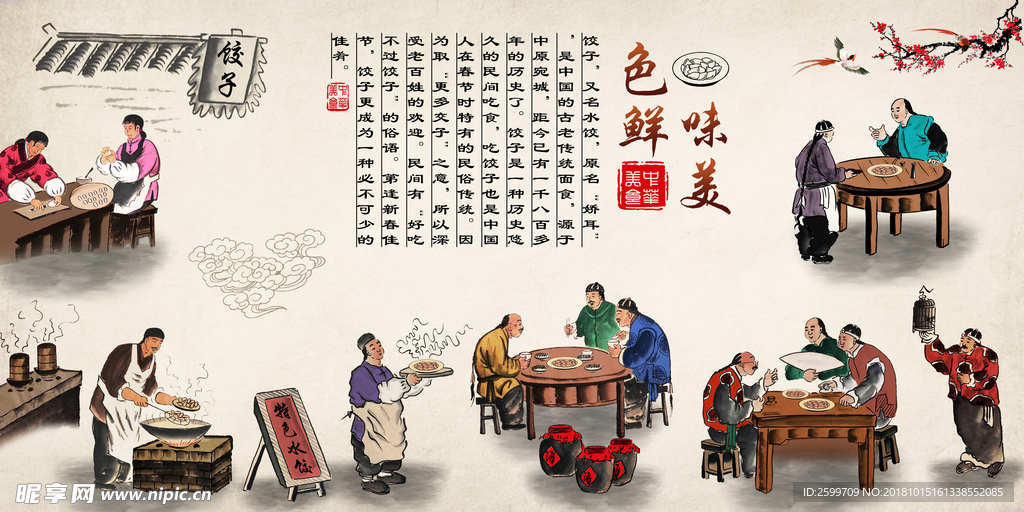 饺子
饺子，又名水饺，原名“娇耳”
，是中国的古老传统面食，源于
中原宛城，距今已有一千八百多
年的历史了。饺子是一种历史悠
久的民间吃食，吃饺子也是中国
人在春节时特有的民俗传统。因
为取“更多交子”之意，所以深
受老百姓的欢迎。民间有“好吃
不过饺子”的俗语。第逢新春佳
节，饺子更成为一种必不可少的
佳肴。
中华美食
色鲜
味美
中华美食
特色水饺
酒
昵享网 www.nipic.cn
ID:2599709 NO:20181015161338552085